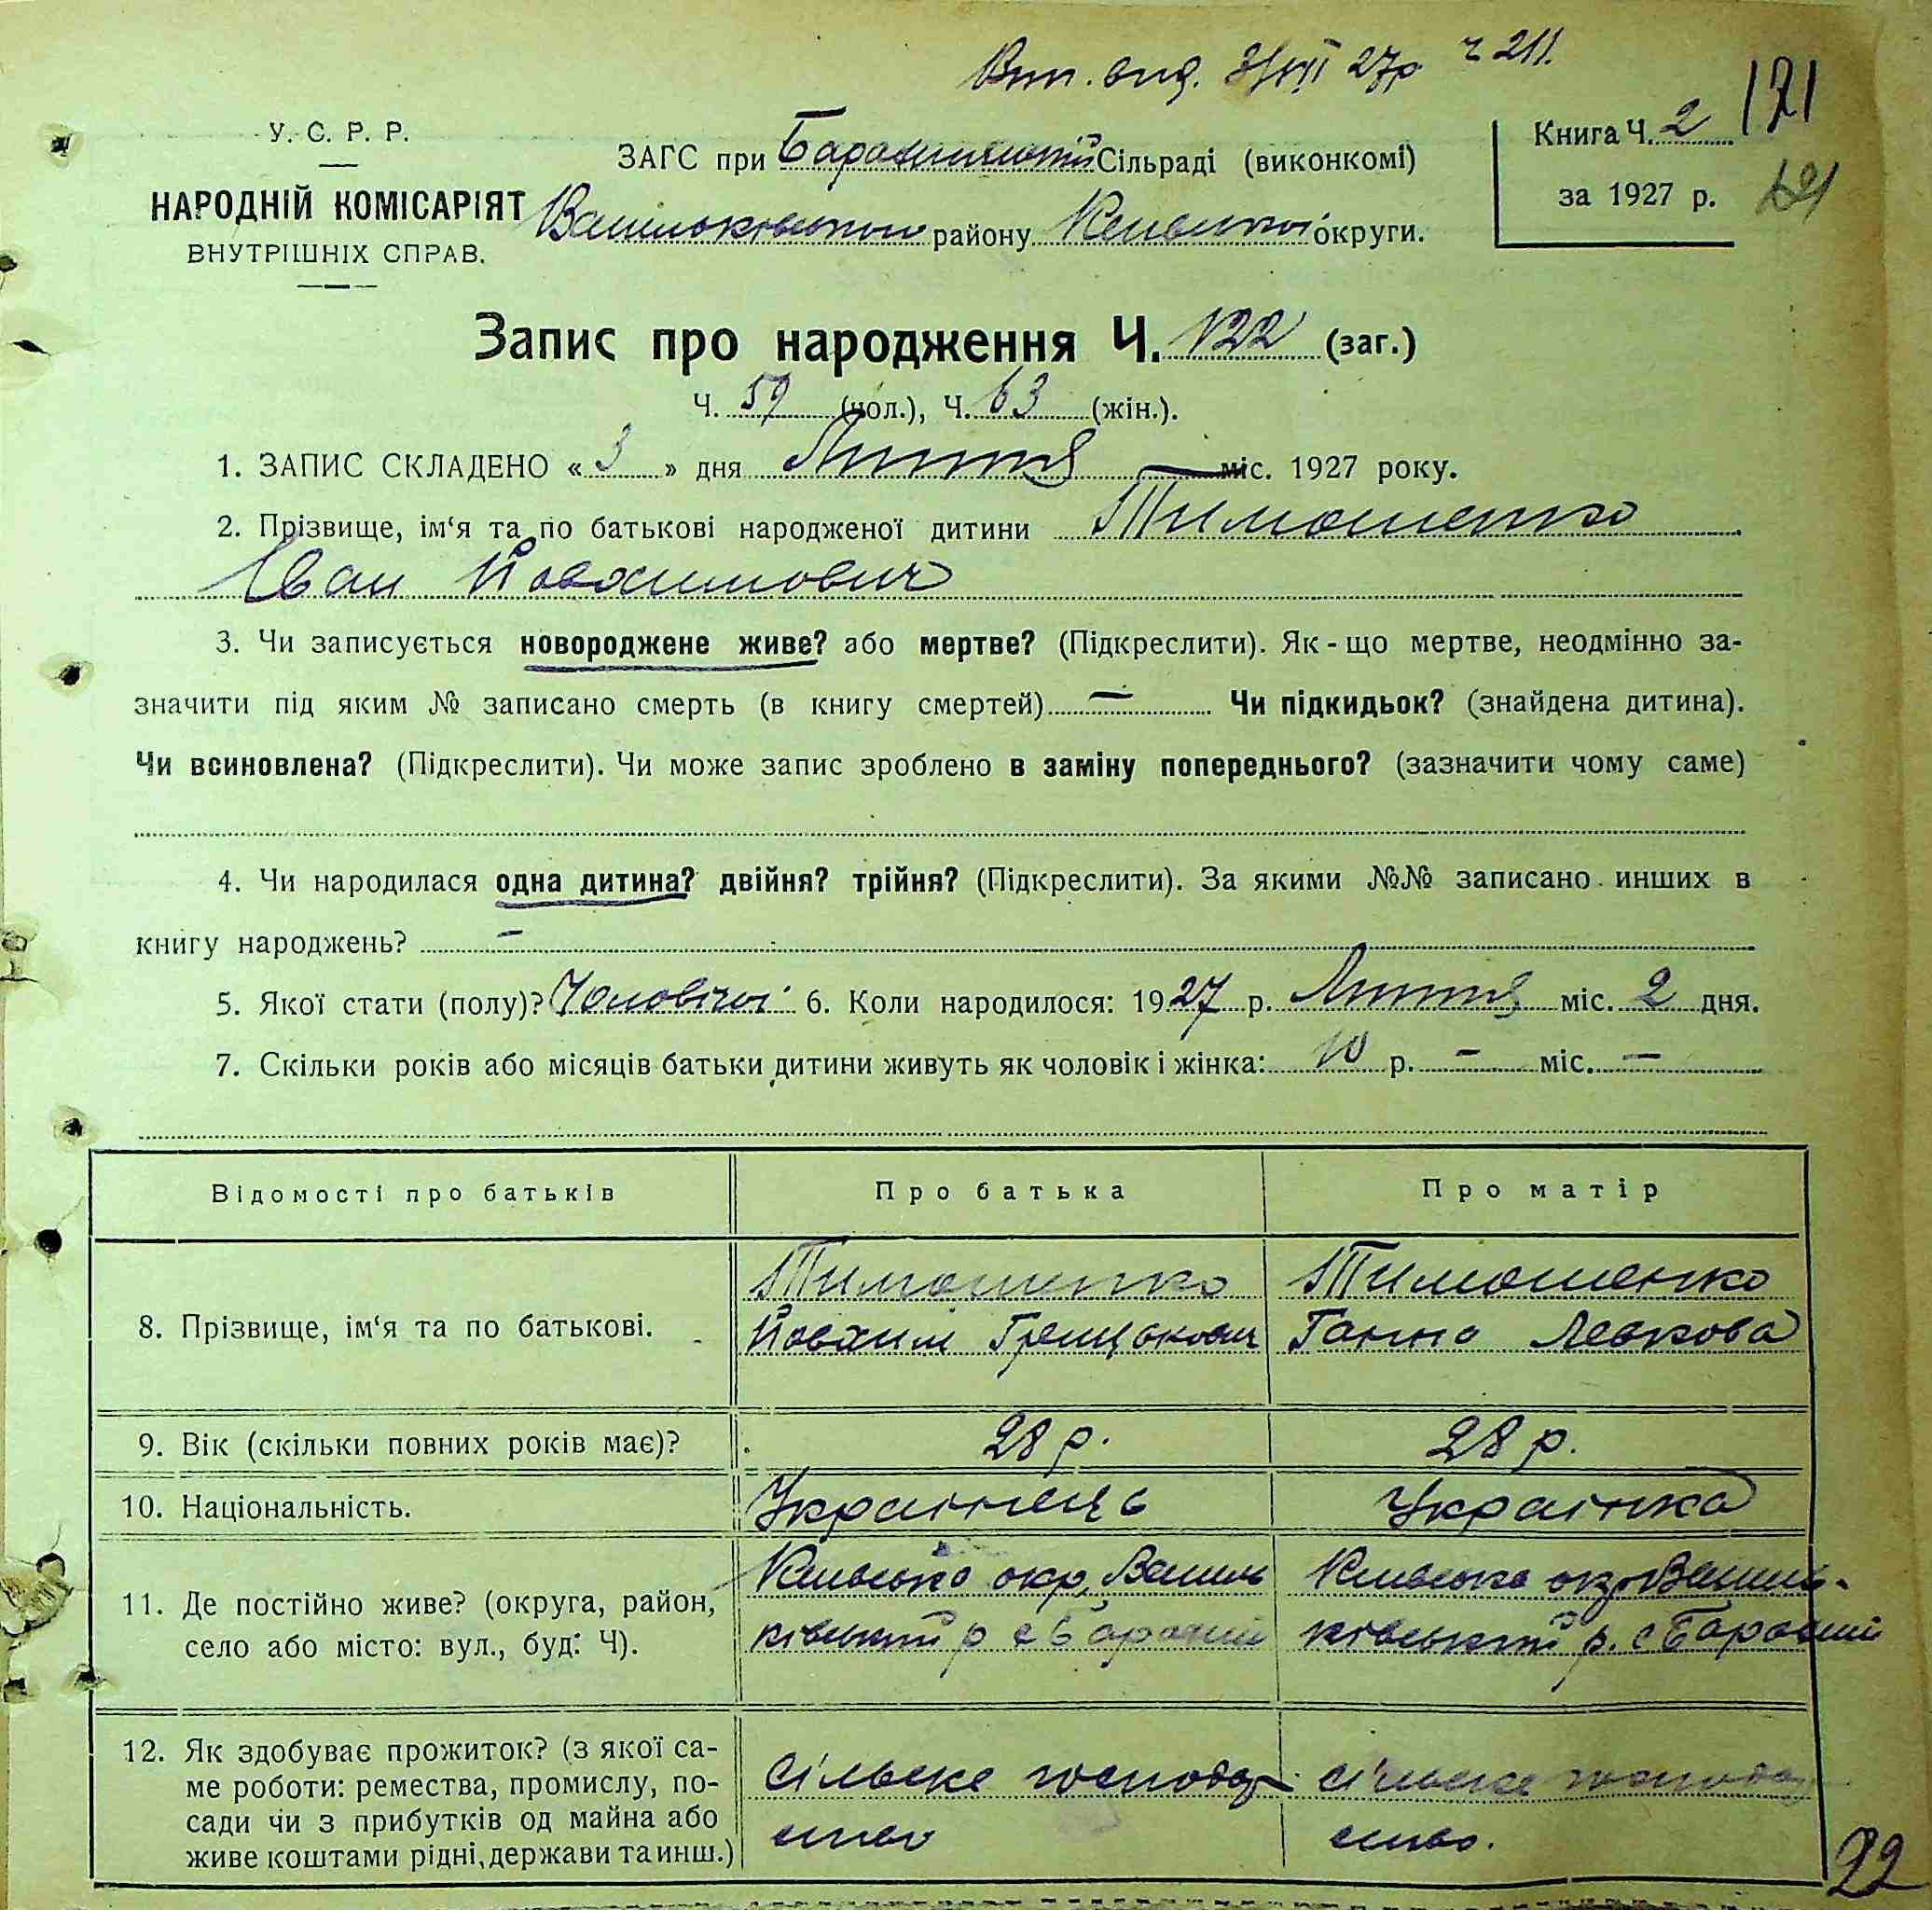 Вип. вид. 3/VII 27р ч 211.
121
У. С. Р. Р.
НАРОДНІЙ КОМІСАРІЯТ
ВНУТРІШНІХ СПРАВ.
ЗАГС при Сільраді (виконкомі)
Васильківського району Київської округи.
Книга Ч. 2
за 1927 р.
121
Запис про народження Ч. 122 (заг.)
Ч. 59 (чол.), Ч. 63 (жін.).
1. ЗАПИС СКЛАДЕНО « 3 » дня Липня — міс. 1927 року.
2. Прізвище, ім‘я та по батькові народженої дитини Тимошенко
Іван Йовхимович
3. Чи записується новороджене живе? або мертве? (Підкреслити). Як-що мертве, неодмінно за-
значити під яким № записано смерть (в книгу смертей) — Чи підкидьок? (знайдена дитина).
Чи всиновлена? (Підкреслити). Чи може запис зроблено в заміну попереднього? (зазначити чому саме)
4. Чи народилася одна дитина? двійня? трійня? (Підкреслити). За якими №№ записано инших в
книгу народжень? —
5. Якої стати (полу)? Чоловічої 6. Коли народилося: 1927 р. Липня міс. 2 дня.
7. Скільки років або місяців батьки дитини живуть як чоловік і жінка: 10 р. — міс. —
Відомості про батьків Про батька Про матір
8. Прізвище, ім‘я та по батькові. Тимошенко Йовхим Грицькович Тимошенко Ганна Левкова
9. Вік (скільки повних років має)? 28 р. 28 р.
10. Національність. Українець Українка
11. Де постійно живе? (округа, район, Київська окр, Василь Київська окр Василь-
село або місто: вул., буд. Ч). ківський р с ківський р. с
12. Як здобуває прожиток? (з якої са-
ме роботи: ремества, промислу, по- сільське господар сільське господар
сади чи з прибутків од майна або
живе коштами рідні, держави та инш.) ство ство.
22